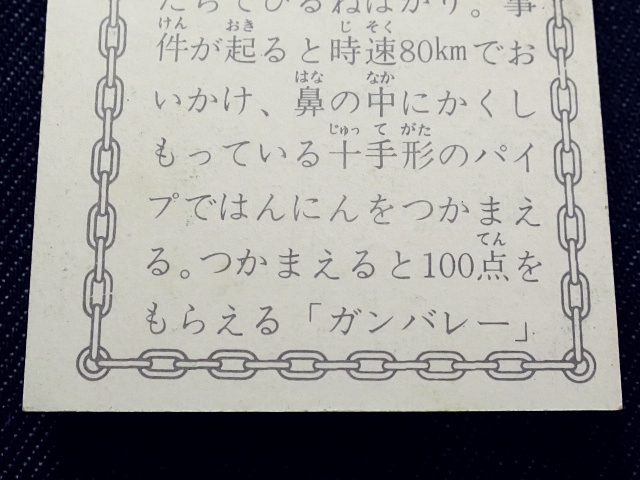 たちでひるねばかり。事
件が起ると時速80kmでお
いかけ、鼻の中にかくし
もっている十手形のパイ
プではんにんをつかまえ
る。つかまえると100点を
もらえる「ガンバレー」